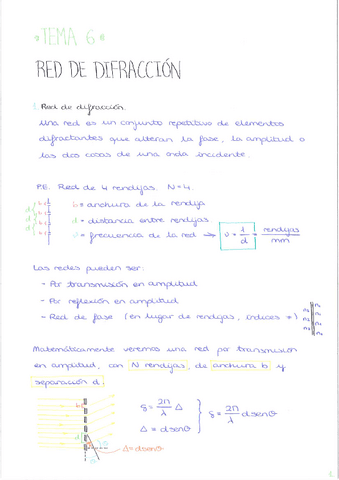 • TEMA 6 •
RED DE DIFRACCIÓN
1. Red de difracción.
Una red es un conjunto repetitivo de elementos
difractantes que alteran la fase, la amplitud o
las dos cosas de una onda incidente.
P.E. Red de 4 rendijas N=4.
b = anchura de la rendija
d = distancia entre rendijas
ν = frecuencia de la red → ν = 1/d rendijas/mm
Las redes pueden ser:
- Por transmisión en amplitud
- Por reflexión en amplitud
- Red de fase (en lugar de rendijas, índices ≠)
Matemáticamente veremos una red por transmisión
en amplitud, con N rendijas, de anchura b y
separación d.
δ = 2π/λ Δ
Δ = d senθ
δ = 2π/λ d senθ
Δ = d senθ